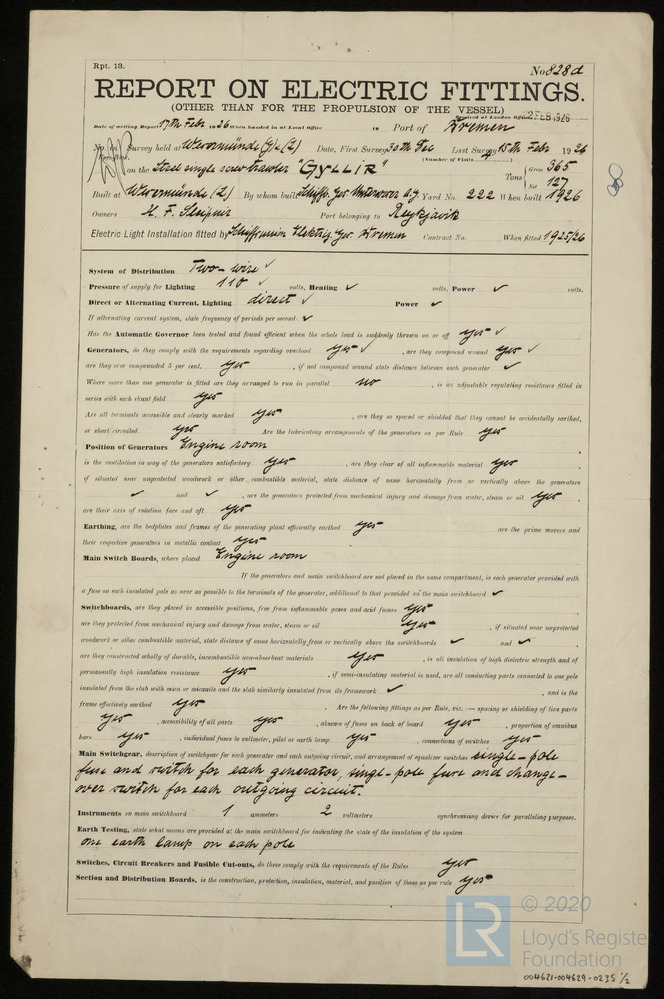 Rpt. 13.
No 828d
REPORT ON ELECTRIC FITTINGS.
(OTHER THAN FOR THE PROPULSION OF THE VESSEL)
Received at London Office 2 FEB 1926
Date of writing Report 17th Feb. 1926 When handed in at Local Office 19 Port of Bremen
No. in Survey held at Wesermünde (G) & (L) Date, First Survey 30th Dec Last Survey 15th Febr 1926
Reg. Book. (Number of Visits 4)
on the Steel single screw trawler "GYLLIR" Tons Gross 365
Net 127
Built at Wesermünde (L) By whom built Schiffb. Ges. Unterweser A.G. Yard No. 222 When built 1926
Owners H. F. Sleipnir Port belonging to Reykjavik
Electric Light Installation fitted by Elektriz. Ges. Bremen Contract No. When fitted 1925/26
System of Distribution Two-wire ✓
Pressure of supply for Lighting 110 ✓ volts, Heating ✓ volts, Power ✓ volts.
Direct or Alternating Current, Lighting direct ✓ Power ✓
If alternating current system, state frequency of periods per second ✓
Has the Automatic Governor been tested and found efficient when the whole load is suddenly thrown on or off yes ✓
Generators, do they comply with the requirements regarding overload yes ✓, are they compound wound yes ✓
are they over compounded 5 per cent. yes, if not compound wound state distance between each generator ✓
Where more than one generator is fitted are they arranged to run in parallel no, is an adjustable regulating resistance fitted in
series with each shunt field yes
Are all terminals accessible and clearly marked yes, are they so spaced or shielded that they cannot be accidentally earthed,
or short circuited yes Are the lubricating arrangements of the generators as per Rule yes
Position of Generators Engine room
is the ventilation in way of the generators satisfactory yes, are they clear of all inflammable material yes
if situated near unprotected woodwork or other combustible material, state distance of same horizontally from or vertically above the generators
✓ and ✓, are the generators protected from mechanical injury and damage from water, steam or oil yes
are their axis of rotation fore and aft yes
Earthing, are the bedplates and frames of the generating plant efficiently earthed yes are the prime movers and
their respective generators in metallic contact yes
Main Switch Boards, where placed Engine room
If the generators and main switchboard are not placed in the same compartment, is each generator provided with
a fuse on each insulated pole as near as possible to the terminals of the generator, additional to that provided on the main switchboard ✓
Switchboards, are they placed in accessible positions, free from inflammable gases and acid fumes yes
are they protected from mechanical injury and damage from water, steam or oil yes, if situated near unprotected
woodwork or other combustible material, state distance of same horizontally from or vertically above the switchboards ✓ and ✓
are they constructed wholly of durable, incombustible non-absorbent materials yes, is all insulation of high dielectric strength and of
permanently high insulation resistance yes, if semi-insulating material is used, are all conducting parts connected to one pole
insulated from the slab with mica or micanite and the slab similarly insulated from its framework ✓, and is the
frame effectively earthed yes. Are the following fittings as per Rule, viz.: — spacing or shielding of live parts
yes, accessibility of all parts yes, absence of fuses on back of board yes, proportion of omnibus
bars yes, individual fuses to voltmeter, pilot or earth lamp yes, connections of switches yes
Main Switchgear, description of switchgear for each generator and each outgoing circuit, and arrangement of equaliser switches single-pole
fuse and switch for each generator, single-pole fuse and change-
over switch for each outgoing circuit.
Instruments on main switchboard 1 ammeters 2 voltmeters synchronizing device for paralleling purposes.
Earth Testing, state what means are provided at the main switchboard for indicating the state of the insulation of the system
one earth lamp on each pole
Switches, Circuit Breakers and Fusible Cut-outs, do these comply with the requirements of the Rules yes
Section and Distribution Boards, is the construction, protection, insulation, material, and position of these as per rule yes
LR
© 2020
Lloyd's Register
Foundation
004621-004629-0235 1/2